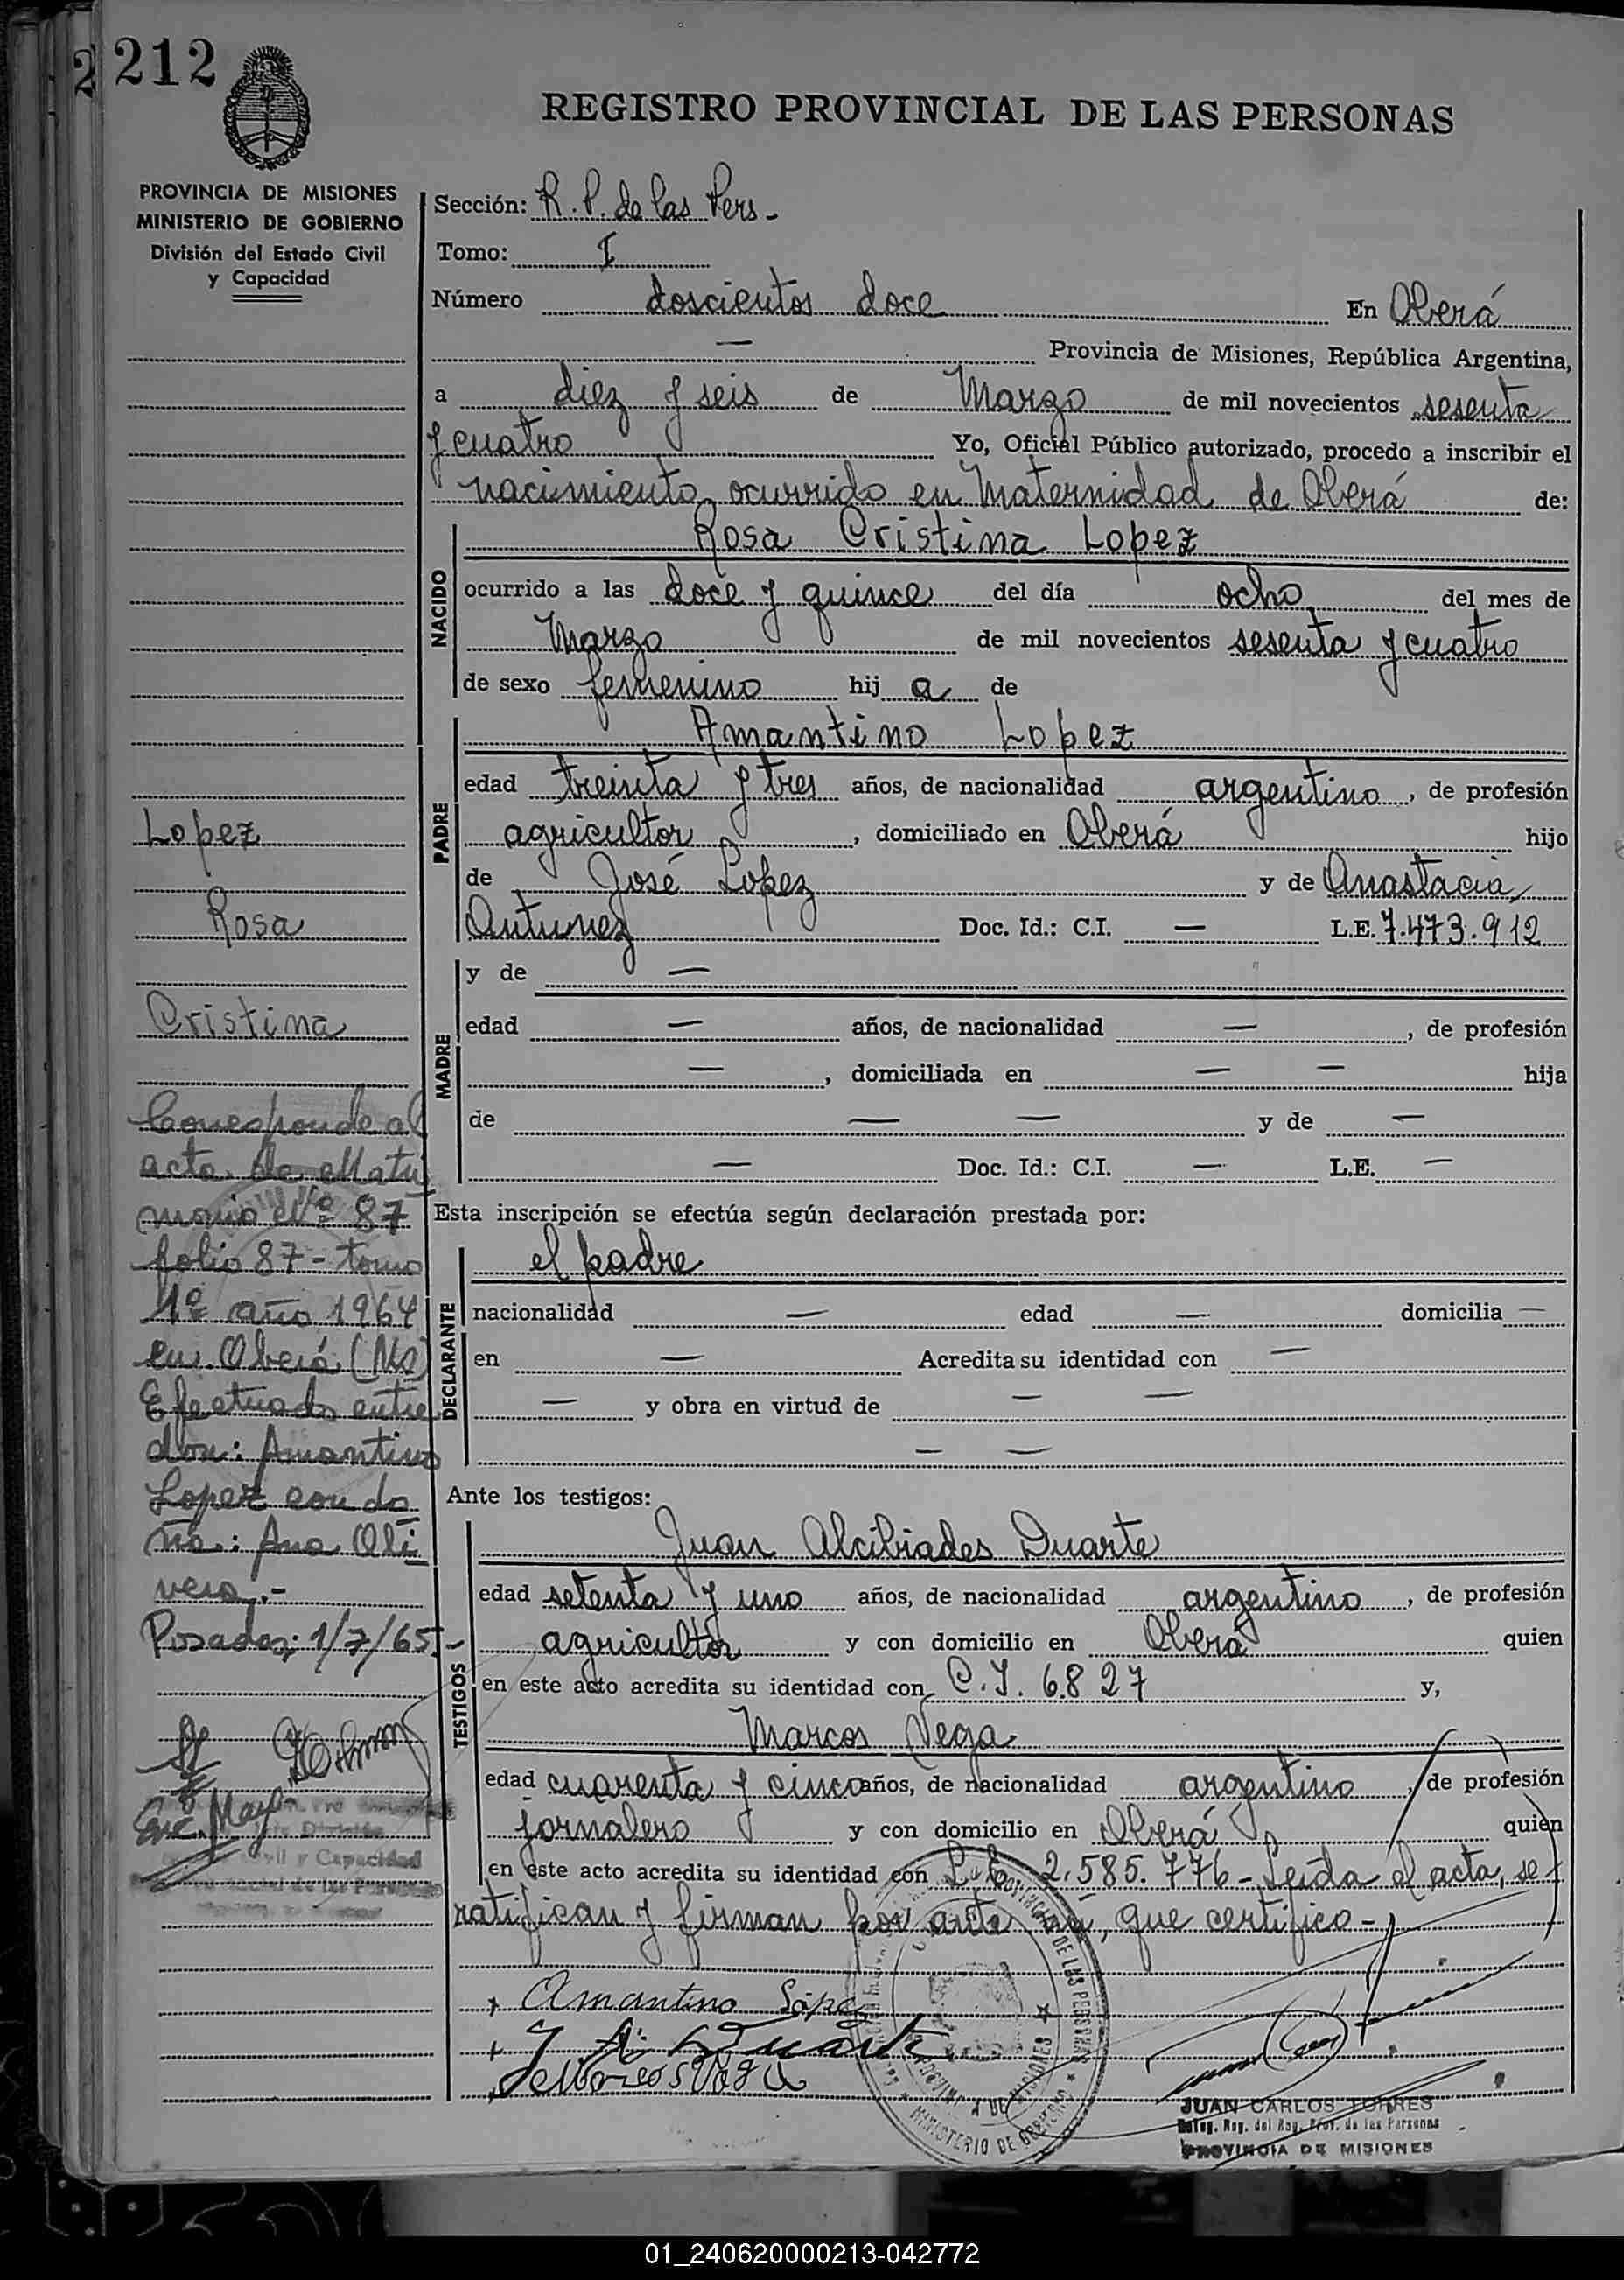 2 212
REGISTRO PROVINCIAL DE LAS PERSONAS
PROVINCIA DE MISIONES
MINISTERIO DE GOBIERNO
División del Estado Civil
y Capacidad
Sección: R. P. de las Pers -
Tomo: I
Número doscientos doce En Oberá
— Provincia de Misiones, República Argentina,
a diez y seis de Marzo de mil novecientos sesenta
y cuatro Yo, Oficial Público autorizado, procedo a inscribir el
nacimiento ocurrido en Maternidad de Oberá de:
NACIDO
Rosa Cristina Lopez
ocurrido a las doce y quince del día ocho del mes de
Marzo de mil novecientos sesenta y cuatro
de sexo femenino hij a de
PADRE
Amantino Lopez
edad treinta y tres años, de nacionalidad argentino, de profesión
agricultor, domiciliado en Oberá hijo
de José Lopez y de Anastacia
Antunez Doc. Id.: C.I. — L.E. 7.473.912
MADRE
y de —
edad — años, de nacionalidad —, de profesión
—, domiciliada en — — hija
de — — y de —
— Doc. Id.: C.I. — L.E. —
Esta inscripción se efectúa según declaración prestada por:
DECLARANTE
el padre
nacionalidad — edad — domicilia —
en — Acredita su identidad con —
— y obra en virtud de — —
— —
Ante los testigos:
TESTIGOS
Juan Alcibiades Duarte
edad setenta y uno años, de nacionalidad argentino, de profesión
agricultor y con domicilio en Oberá quien
en este acto acredita su identidad con C.I. 6.827 y,
Marcos Vega
edad cuarenta y cinco años, de nacionalidad argentino, de profesión
jornalero y con domicilio en Oberá quien
en este acto acredita su identidad con L.E. 2.585.776 - Leida el acta, se
ratifican y firman por ante mi, que certifico -
Amantino Lópe
J A Duarte
Marcos Vega
JUAN CARLOS TORRES
Deleg. Reg. del Reg. Prov. de las Personas
PROVINCIA DE MISIONES
MINISTERIO DE GOBIERNO
PROVINCIA DE MISIONES
DE LAS PERSONAS
Lopez
Rosa
Cristina
Corresponde al
acta de Matri
monio Nº 87
folio 87 - tomo
1º año 1964
en Oberá (Ms)
Efectuado entre
don: Amantino
Lopez con do
ña: Ana Oli
vera.-
Posadas; 1/7/65.-
División
Civil y Capacidad
01_240620000213-042772